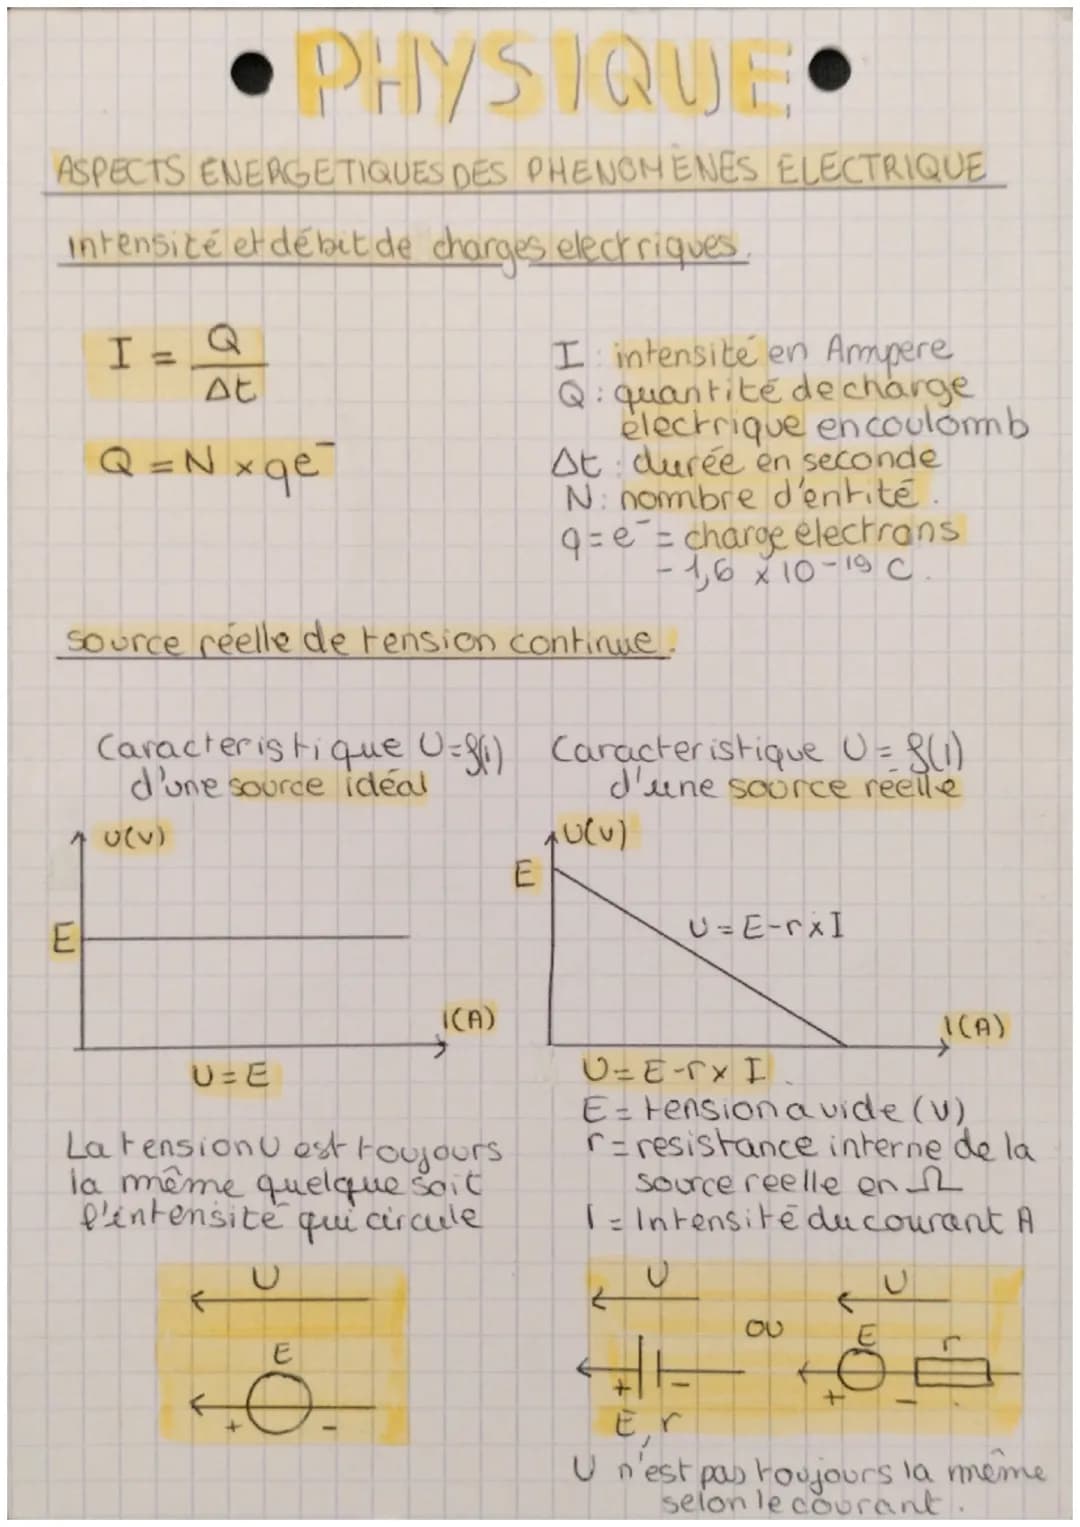 • PHYSIQUE •
ASPECTS ENERGETIQUES DES PHENOMENES ELECTRIQUE
intensité et débit de charges electriques.
I = Q / Δt
Q = N × qe⁻
I : intensité en Ampere
Q : quantité de charge
électrique en coulomb
Δt : durée en seconde
N : nombre d'entité.
q = e⁻ = charge électrons
- 1,6 × 10⁻¹⁹ C.
source réelle de tension continue :
Caracteristique U = f(i)
d'une source idéal
U(V)
E
I(A)
U = E
La tension U est toujours
la même quelque soit
l'intensité qui circule
U
E
+ -
Caracteristique U = f(I)
d'une source réelle
U(V)
E
U = E - r × I
I(A)
U = E - r × I.
E = tension a vide (V)
r = resistance interne de la
source reelle en Ω
I = Intensité du courant A
U
OU
U
+ -
E, r
E r
+ -
U n'est pas toujours la même
selon le courant.